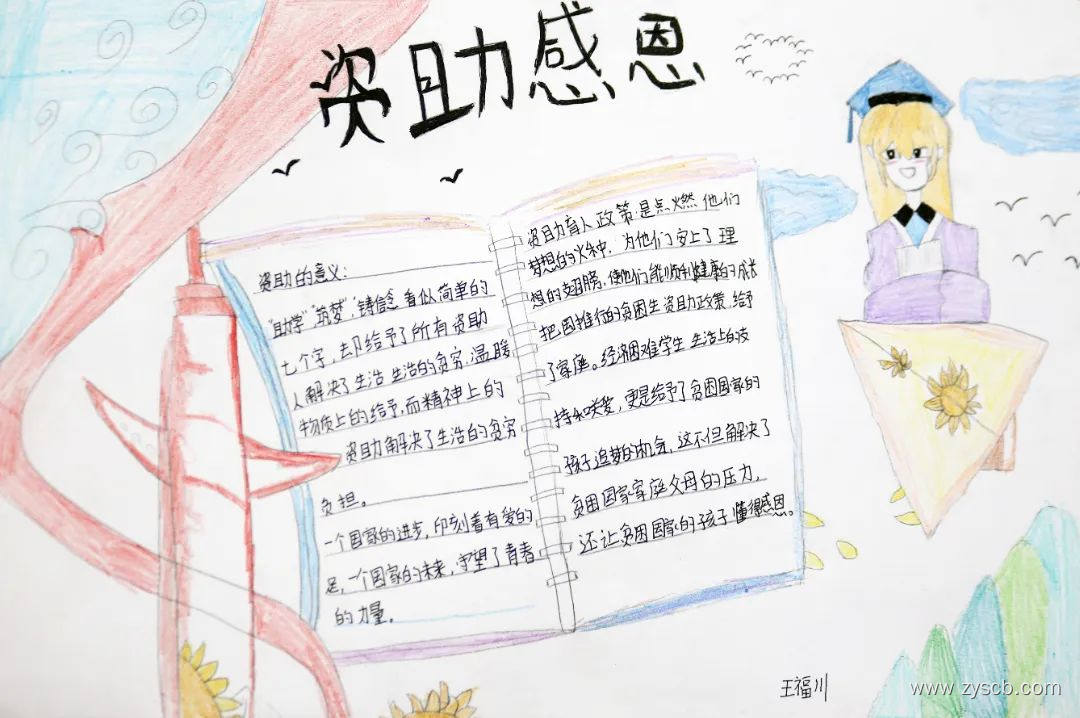 资助感恩
资助的意义:
"助学""筑梦""铸信念"看似简单的
七个字,却给予了所有资助
人解决了生活生活的贫穷,温暖
物质上的给予,而精神上的
资助解决了生活的贫穷
负担。
一个国家的进步,印刻着有爱的
足,一个国家的未来,守望了青春
的力量。
资助育人政策是点燃他们
梦想的火种,为他们安上了理
想的翅膀,使他们能顺利健康的成长
把国推行的贫困生资助政策,给予
了家庭。经济困难学生生活上的支
持和关爱,更是给予了贫困国家的
孩子追梦的机会,这不但解决了
贫困国家家庭父母的压力,
还让贫困国家的孩子懂得感恩。
王福川
www.zyscb.com